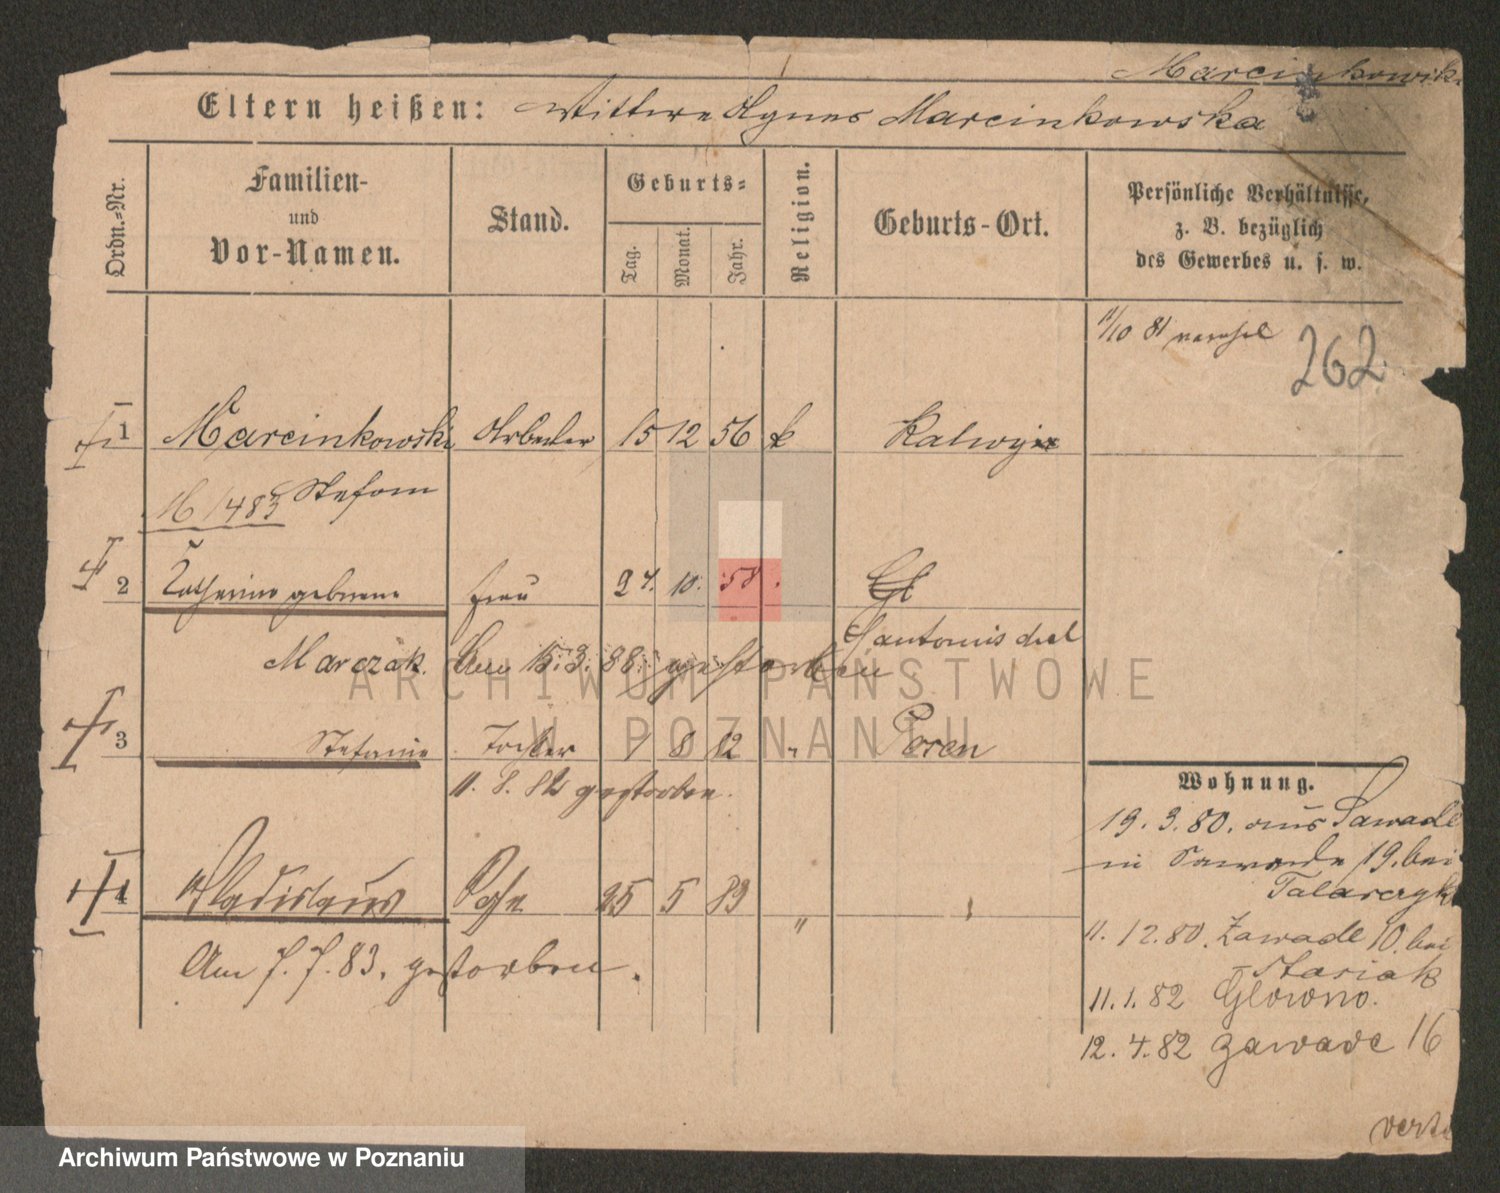 Marcinkowski
Eltern heißen: Wittwe Agnes Marcinkowska
Ordn.=Nr.
Familien-
und
Vor-Namen.
Stand.
Geburts=
Tag.
Monat.
Jahr.
Religion.
Geburts-Ort.
Persönliche Verhältnisse,
z. B. bezüglich
des Gewerbes u. s. w.
11/10 81
262
1 Marcinkowski Arbeiter 15 12 56 k
Stefan
16/1483
2 Catharina geborene Frau 24. 10. 58.
Santomischel
Marczak. Am 15. 3. 88. gestorben
3 Stefanie Tochter 1 8 82 " Posen
11. 8. 82 gestorben.
4 Wladislaus Sohn 25 5 83 "
Am 7. 7. 83. gestorben.
Wohnung.
19. 3. 80. aus Sawade
in 19. bei
Talarczyk
11. 12. 80. Zawade 10. bei
Stasiak
11. 1. 82 Glowno.
12. 4. 82 Zawade 16
verte
ARCHIWUM PAŃSTWOWE
W POZNANIU
Archiwum Państwowe w Poznaniu